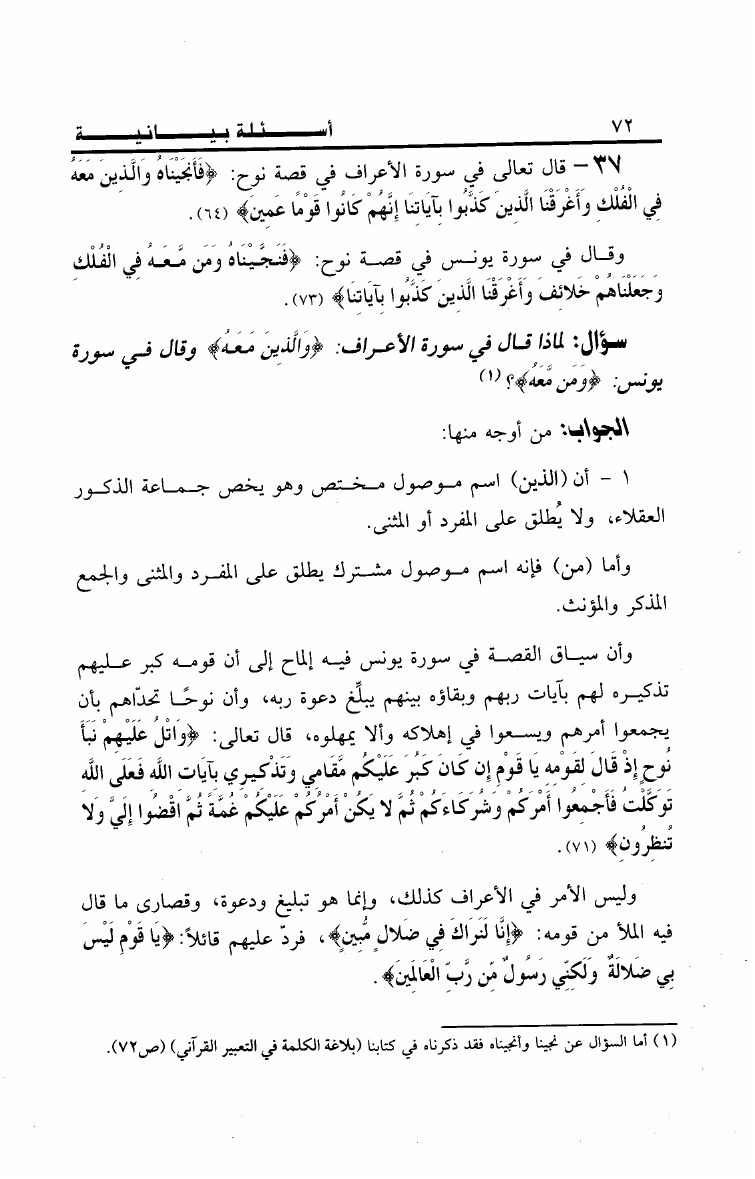 ٧٢ أســـئلة بيـــانيـــة
٣٧ – قال تعالى في سورة الأعراف في قصة نوح: ﴿فَأَنجَيْنَاهُ وَالَّذِينَ مَعَهُ
فِي الْفُلْكِ وَأَغْرَقْنَا الَّذِينَ كَذَّبُوا بِآيَاتِنَا إِنَّهُمْ كَانُوا قَوْمًا عَمِينَ﴾ (٦٤).
وقـال في سورة يونـس في قصـة نوح: ﴿فَنَجَّيْنَاهُ وَمَن مَّعَـهُ فِي الْفُلْكِ
وَجَعَلْنَاهُمْ خَلائِفَ وَأَغْرَقْنَا الَّذِينَ كَذَّبُوا بِآيَاتِنَا﴾ (٧٣).
سـؤال: لماذا قـال في سورة الأعـراف: ﴿وَالَّذِينَ مَعَـهُ﴾ وقال فـي سورة
يونس: ﴿وَمَن مَّعَهُ﴾؟ (١)
الجواب: من أوجه منها:
١ – أن (الذين) اسم مـوصول مـختـص وهو يخص جـمـاعة الذكـور
العقلاء، ولا يُطلق على المفرد أو المثنى.
وأما (من) فإنه اسم مـوصول مشـترك يطلق على المفـرد والمثنى والجمع
المذكر والمؤنث.
وأن سيـاق القصـة في سورة يونس فيـه إلماح إلى أن قومـه كبر عـليهم
تذكيـره لهم بآيات ربهم وبقاؤه بينهم يبلِّغ دعوة ربه، وأن نوحًـا تحدّاهم بأن
يجمعوا أمرهم ويسـعوا في إهلاكه وألا يمهلوه، قال تعالى: ﴿وَاتْلُ عَلَيْهِمْ نَبَأَ
نُوحٍ إِذْ قَالَ لِقَوْمِهِ يَا قَوْمِ إِن كَانَ كَبُرَ عَلَيْكُم مَّقَامِي وَتَذْكِيرِي بِآيَاتِ اللَّهِ فَعَلَى اللَّهِ
تَوَكَّلْتُ فَأَجْمِعُوا أَمْرَكُمْ وَشُرَكَاءَكُمْ ثُمَّ لا يَكُنْ أَمْرُكُمْ عَلَيْكُمْ غُمَّةً ثُمَّ اقْضُوا إِلَيَّ وَلا
تُنظِرُونِ﴾ (٧١).
وليس الأمر في الأعراف كذلك، وإنما هو تبليغ ودعوة، وقصارى ما قال
فيه الملأ من قومه: ﴿إِنَّا لَنَرَاكَ فِي ضَلالٍ مُّبِينٍ﴾، فردّ عليهم قائلاً: ﴿يَا قَوْمِ لَيْسَ
بِي ضَلالَةٌ وَلَكِنِّي رَسُولٌ مِّن رَّبِّ الْعَالَمِينَ﴾.
(١) أما السؤال عن نجينا وأنجيناه فقد ذكرناه في كتابنا (بلاغة الكلمة في التعبير القرآني) (ص٧٢).